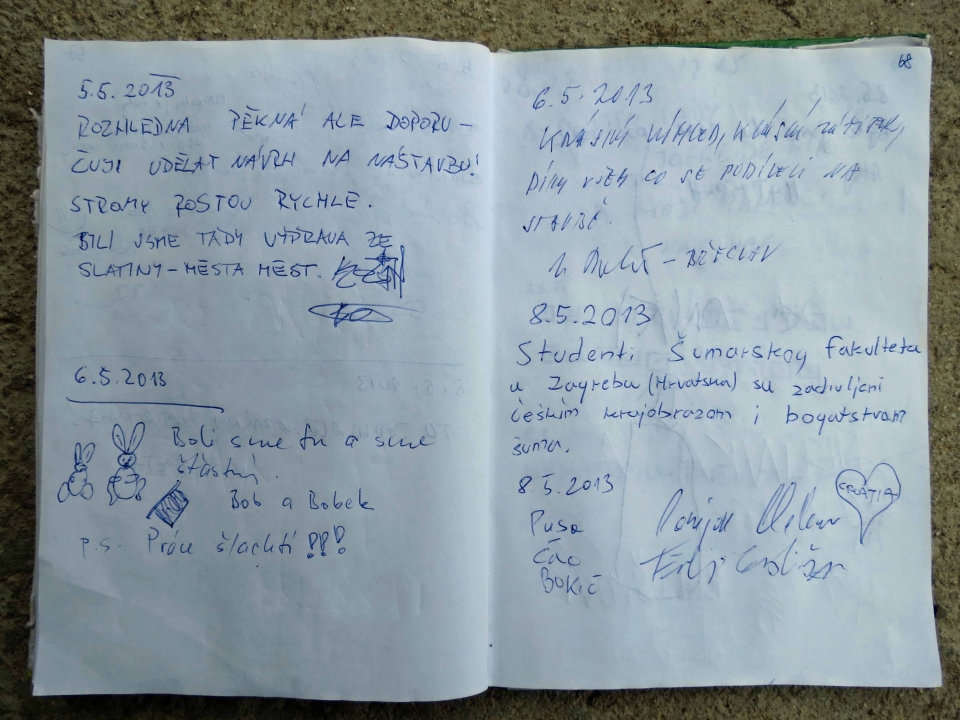 5.5.2013
ROZHLEDNA PĚKNÁ ALE DOPORU-
ČUJI UDĚLAT NÁVRH NA NÁSTAVBU!
STROMY ROSTOU RYCHLE.
BYLI JSME TADY VÝPRAVA ZE
SLATINY-MĚSTA MĚST.
6.5.2013
Boli sme tu a sme
šťastný.
Bob a Bobek
p.s. Práce šlachtí !!!
68
6.5.2013
KRÁSNÝ VÝHLED, KRÁSNÝ ZÁŽITEK,
DÍKY VŠEM CO SE PODÍLELI NA
STAVBĚ.
- BŘECLAV
8.5.2013
Studenti Šumarskog fakulteta
u Zagrebu (Hrvatska) su zadivljeni
češkim krajobrazom i bogatstvom
šuma.
8.5.2013
CROATIA
Pusa
Ćao
BOKIĆ